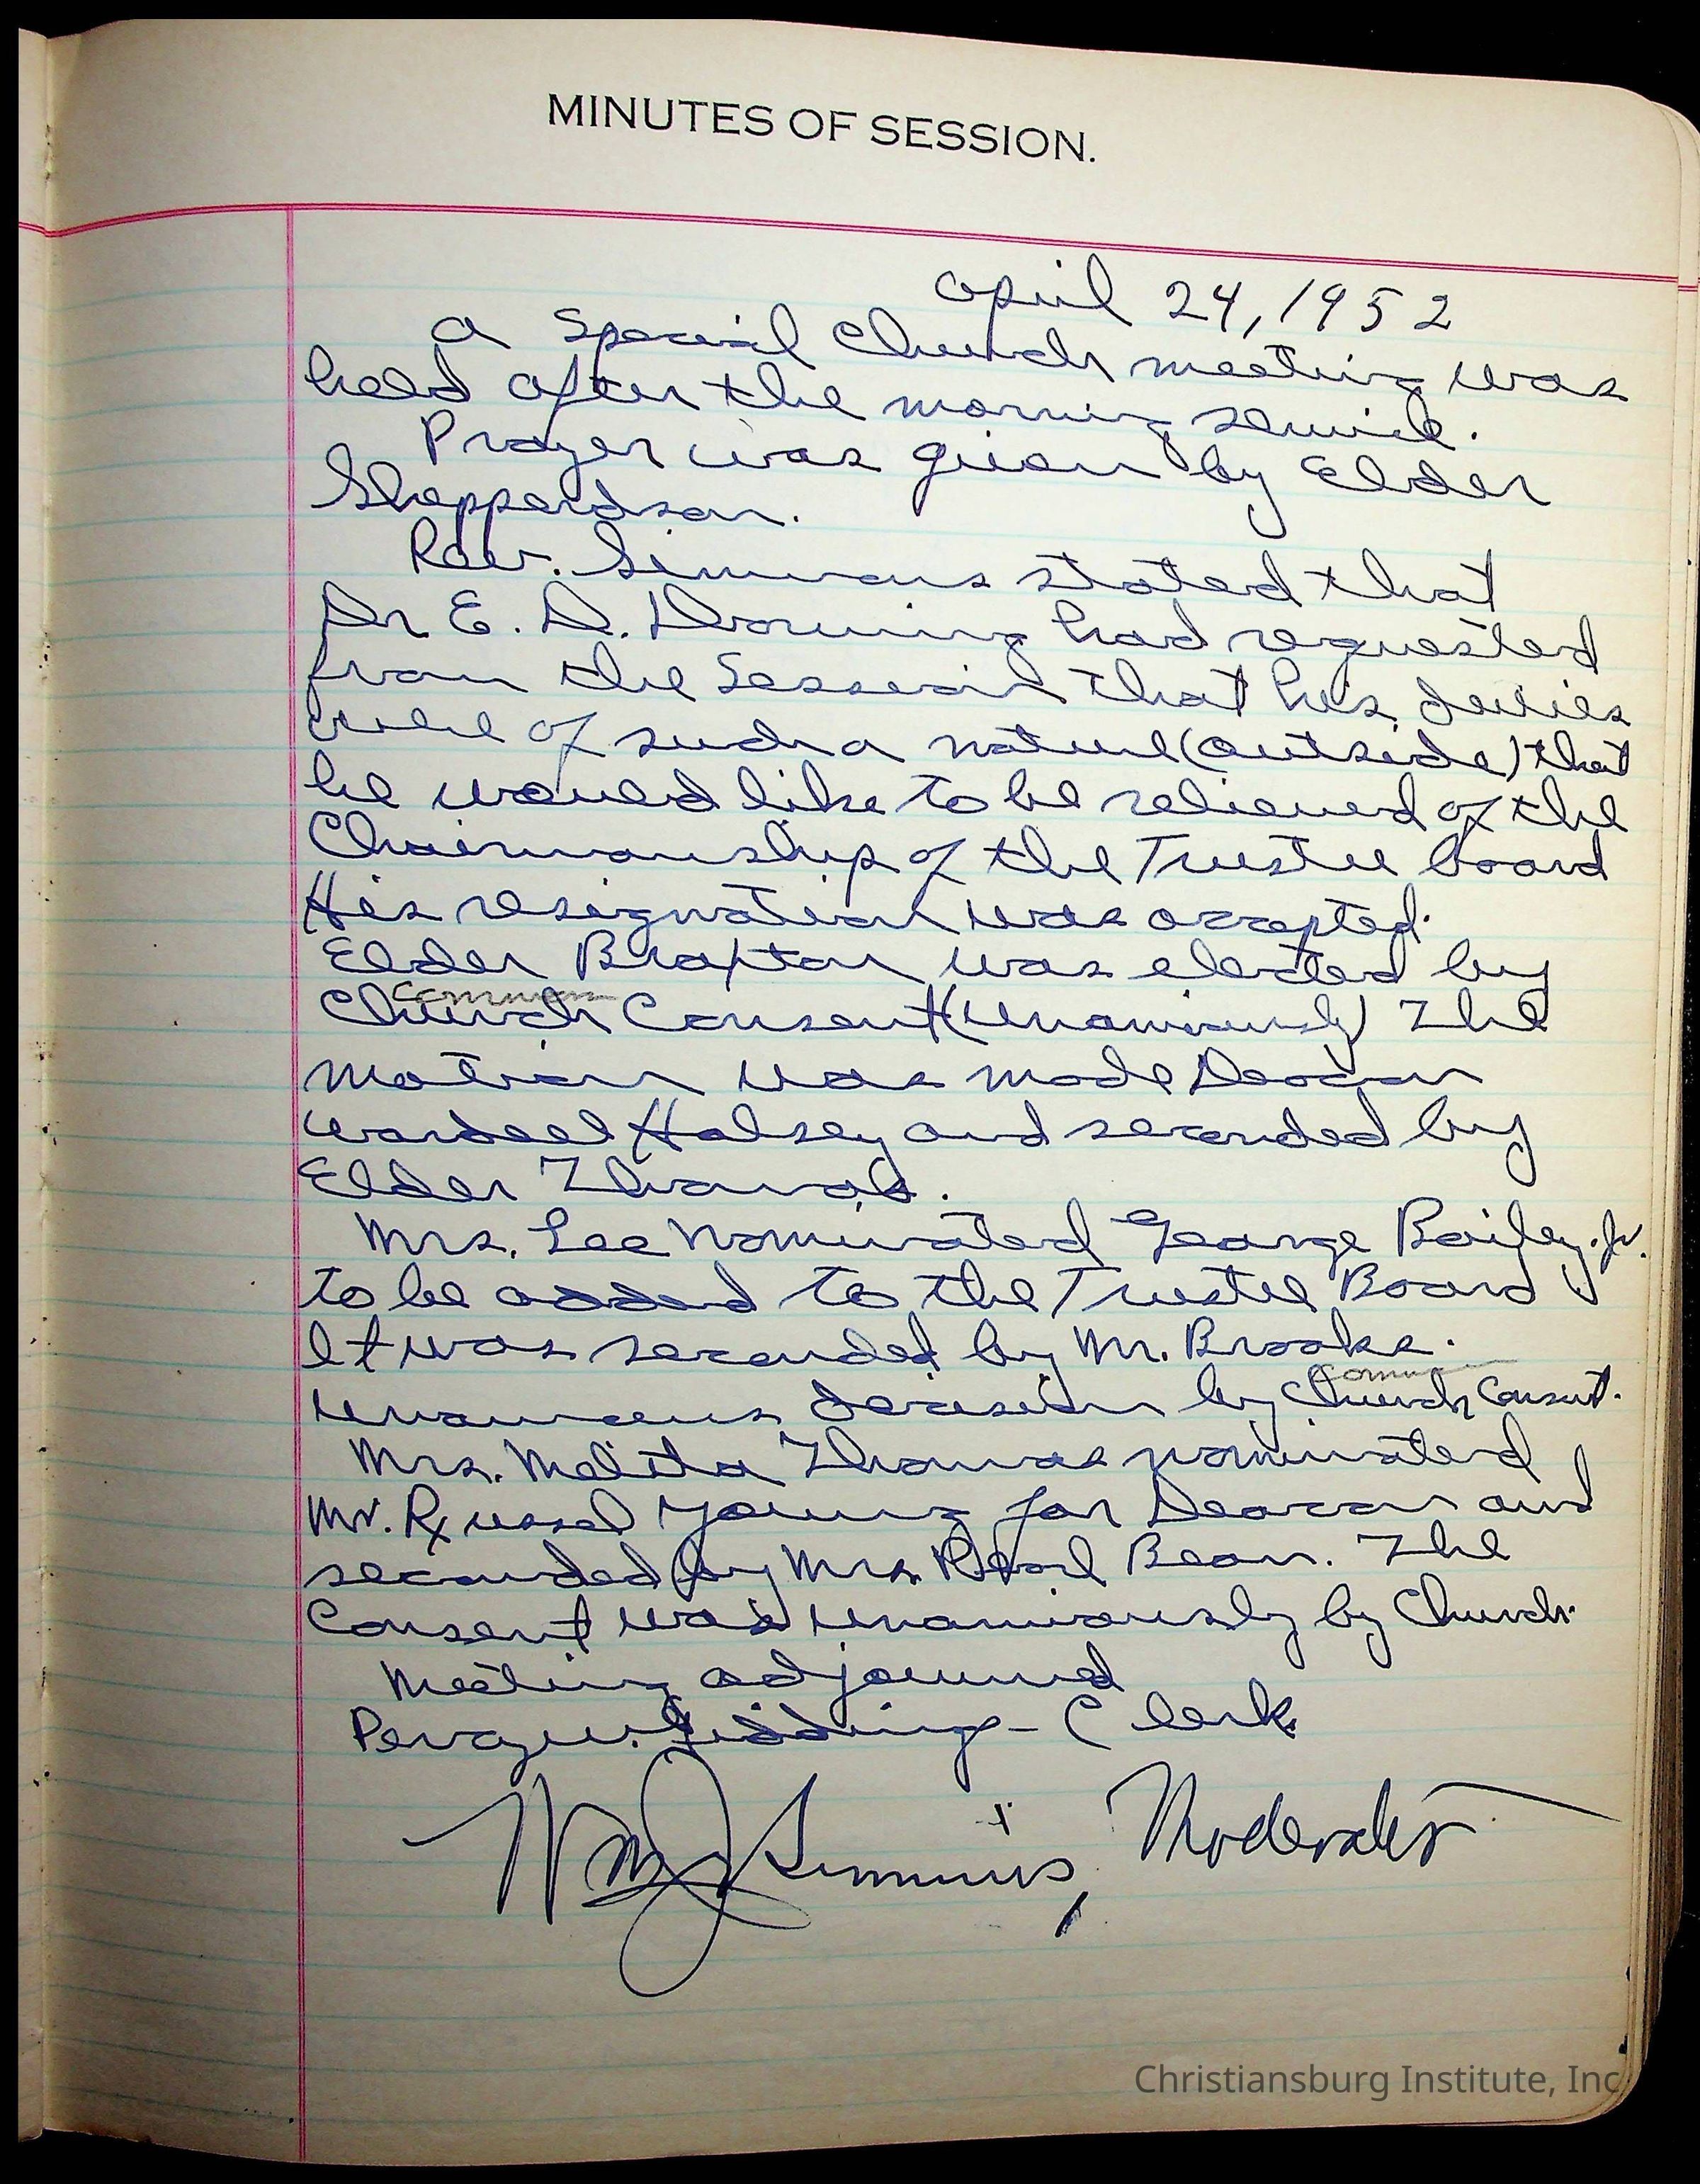 MINUTES OF SESSION.
April 24, 1952
A Special Church meeting was
held after the morning service.
Prayer was given by Elder
Shepperdson.
Rev. Simmons stated that
Dr E. D. Downing had requested
from the Session that his duties
were of such a nature (outside) that
he would like to be relieved of the
Chairmanship of the Trustee board
His resignation was accepted.
Elder Braxton was elected by
common
Church Consent (unanimously) The
motion was made Deacon
Wardell Halsey and seconded by
Elder Thomas.
Mrs. Lee nominated George Bailey Jr.
to be added to the Trustee Board
It was seconded by Mr. Brooks.
common
unanimous decision by Church Consent.
Mrs. Melita Thomas nominated
Mr. Russel Young for Deacon and
seconded by Mrs. Pearl Bean. The
Consent was unanimously by Church.
Meeting adjourned
Giddings - Clerk
Wm J Simmons, Moderator
Christiansburg Institute, Inc